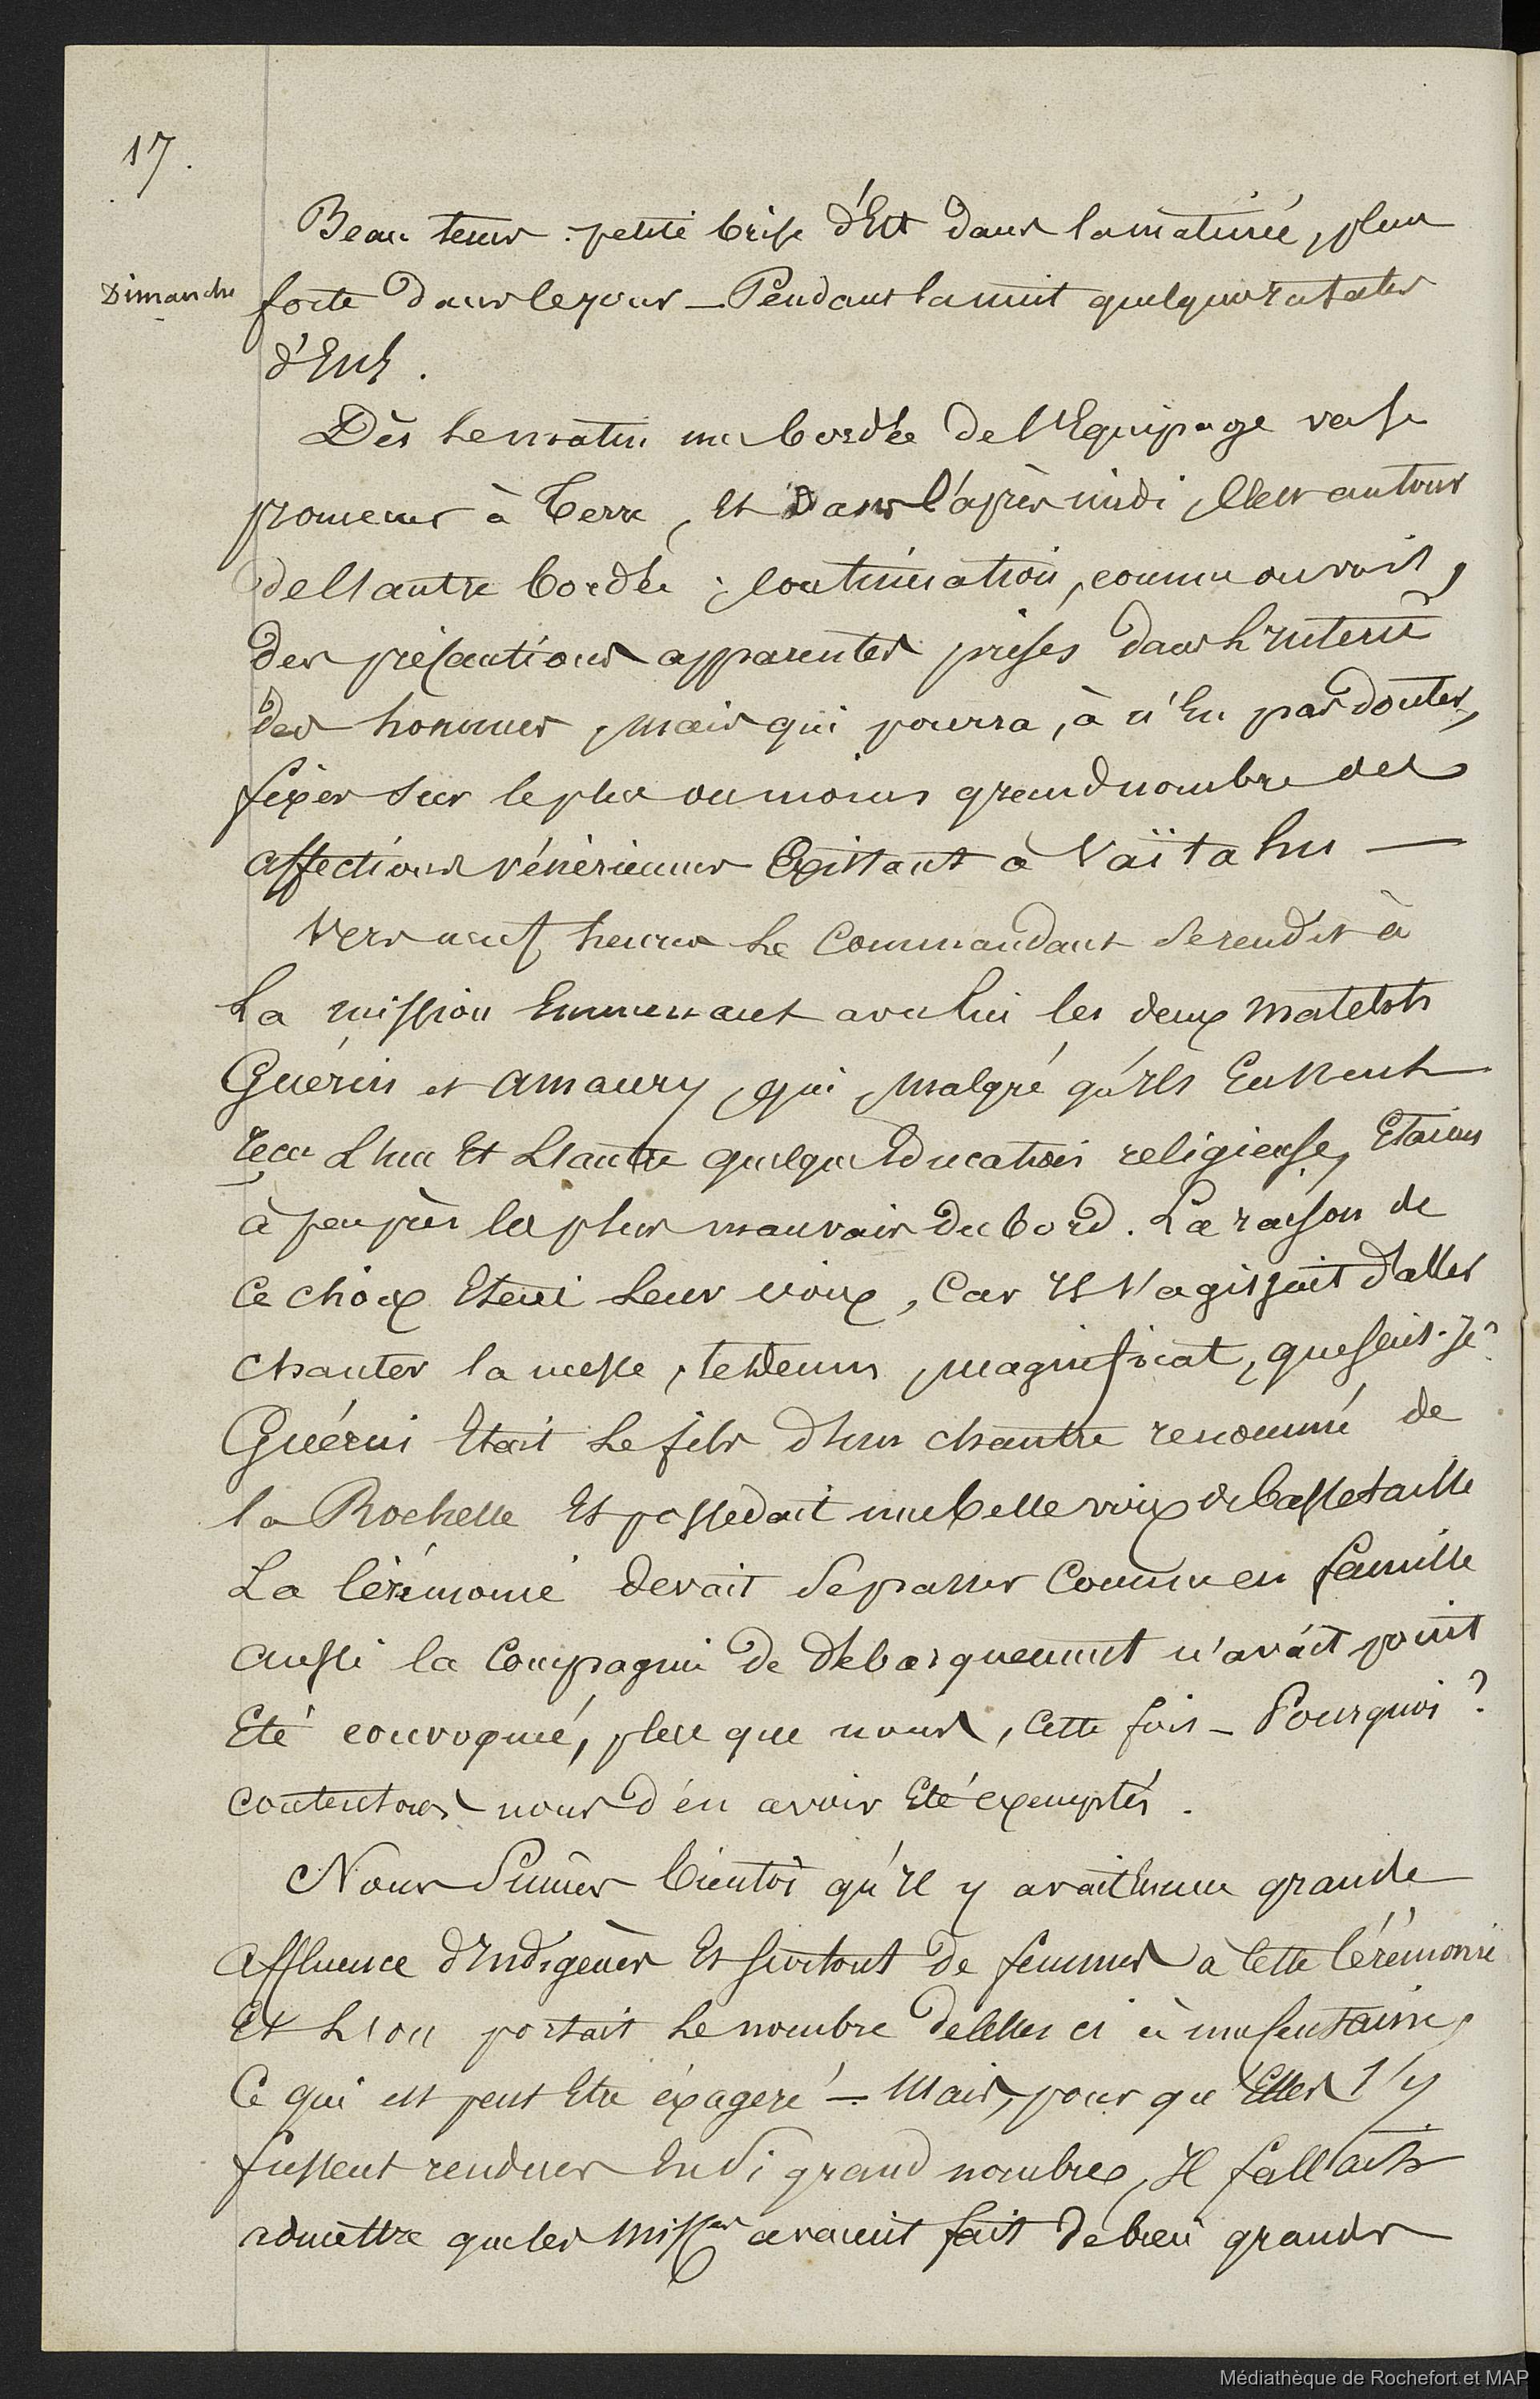 17.
Beau tems : petite brise d'Est dans la matinée, plus
Dimanche
forte dans le jour — Pendant la nuit quelques rafales
d'Est.
Dès le matin une bordée de l'Equipage va se
promener à Terre, et Dans l'après midi c'est au tour
de l'autre bordée ; continuation, comme on voit,
des précautions apparentes prises dans l'intérêt
des hommes, mais qui pourra, à n'en pas douter,
fixer sur le plus ou moins grand nombre des
affections vénériennes Existant à Vaïtahu —
Vers neuf heures le Commandant se rendit à
la mission Emmenant avec lui les deux matelots
Guérin et Amaury, qui, malgré qu'ils Eussent
reçu l'un Et l'autre quelque Education religieuse, Etaient
à peu près les plus mauvais du bord. La raison de
ce choix Etait leur voix, Car Il s'agissait d'aller
chanter la messe, te Deum, magnificat, que sais-je?
Guérin Etait le fils d'un chantre renommé de
la Rochelle Et possédait une belle voix de basse taille
La Cérémonie devait se passer Comme en famille
aussi la Compagnie de débarquement n'avait point
Eté convoquée, plus que nous, cette fois — Pourquoi?
contentons nous d'en avoir Eté exemptés.
Nous Sumes bientôt qu'Il y avait Eu une grande
affluence d'Indigènes Et surtout de femmes à Cette Cérémonie
Et l'on portait le nombre de celles ci à une centaine,
Ce qui est peut Etre éxagéré — Mais, pour qu'Elles s'y
fussent rendues En si grand nombre, Il fallait
admettre que les Miss.res avaient fait de bien grands
Médiathèque de Rochefort et MAP